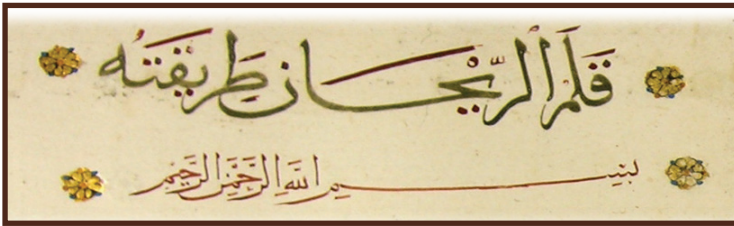 قَلَمُ الرَّيْحَانِ طَرِيقَتُهُ
بِسْمِ اللَّهِ الرَّحْمَنِ الرَّحِيمِ